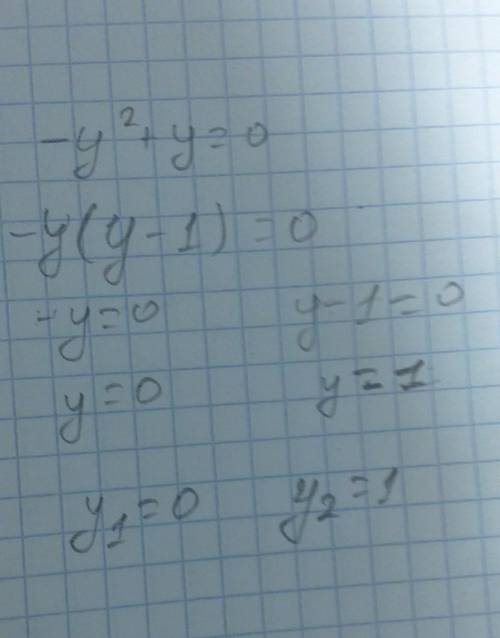 -y²+y=0
-y(y-1)=0
-y=0 y-1=0
y=0 y=1
y₁=0 y₂=1